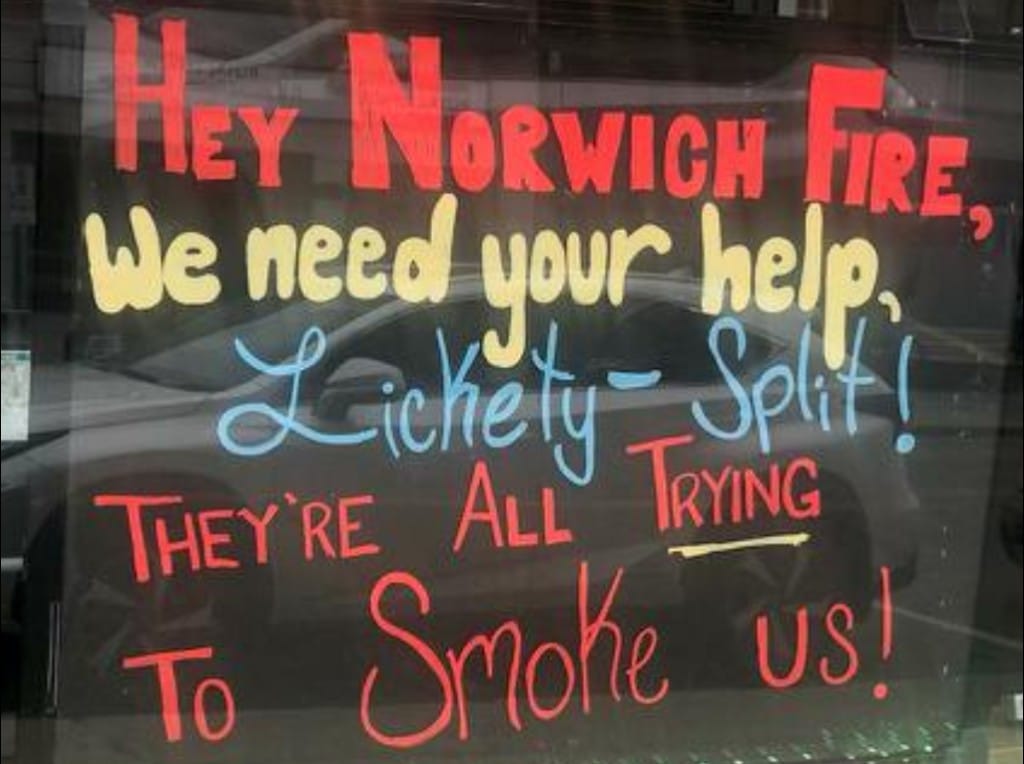 HEY NORWICH FIRE,
We need your help,
Lickety-Split!
THEY'RE ALL TRYING
To Smoke us!